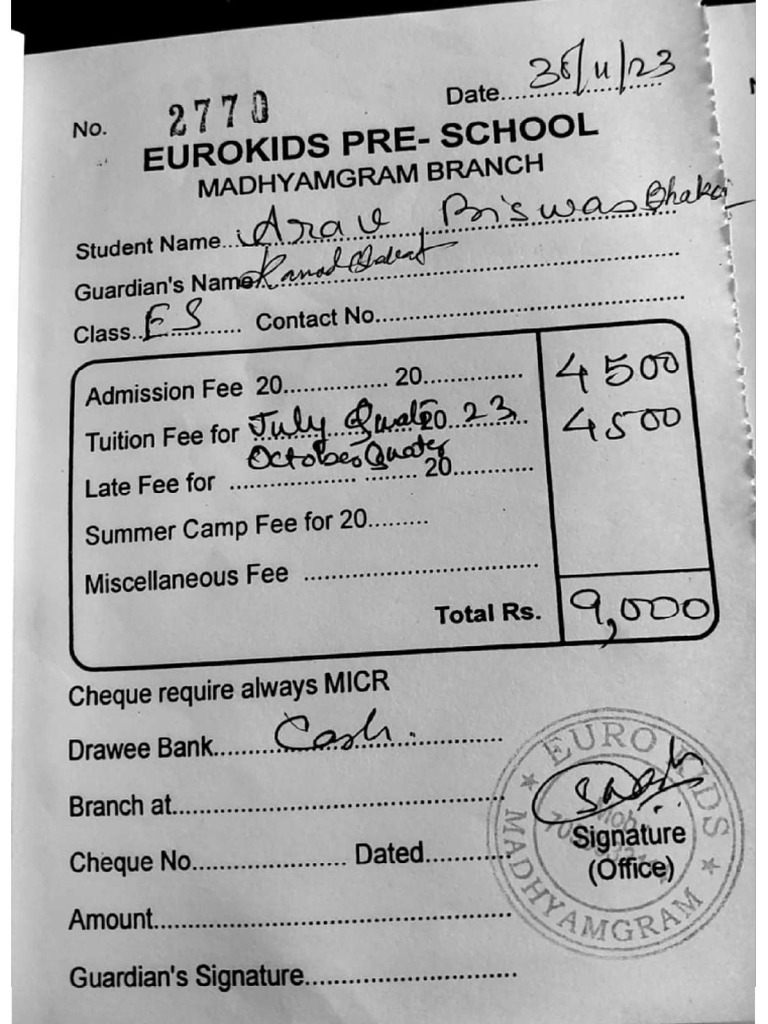 No. 2770
Date.......30/11/23
EUROKIDS PRE- SCHOOL
MADHYAMGRAM BRANCH
Student Name...Arav Biswas Bhakat
Guardian's Name
Class..ES............ Contact No.............................................
Admission Fee 20............... 20............... 4500
Tuition Fee for July Quater 20 23 4500
October Quater
Late Fee for .................. ........ 20............
Summer Camp Fee for 20.........
Miscellaneous Fee ....................................
Total Rs. 9,000
Cheque require always MICR
Drawee Bank.........Cash...............
Branch at..................................................
Cheque No....................... Dated.............
Amount......................................................
Guardian's Signature................................
Signature
(Office)
EURO KIDS
MADHYAMGRAM